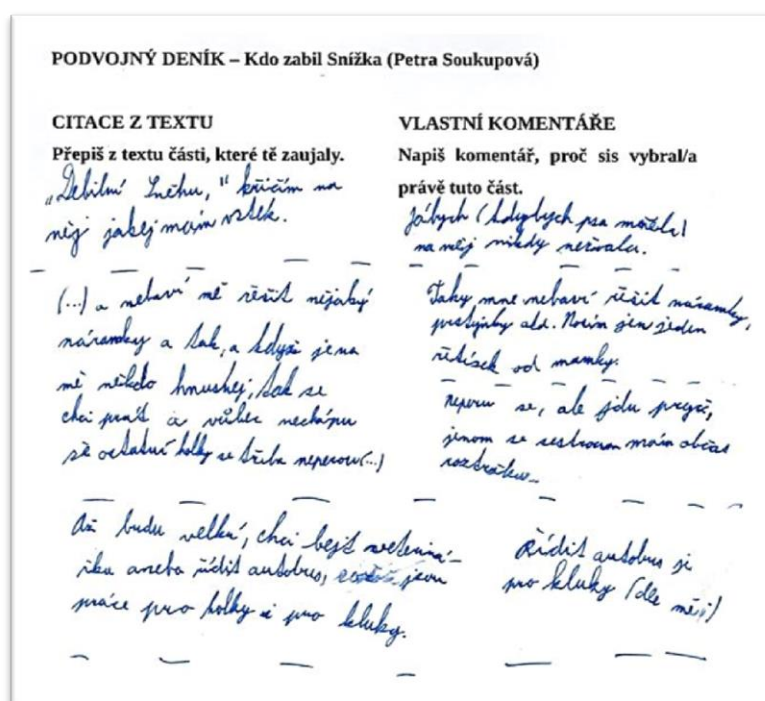 PODVOJNÝ DENÍK – Kdo zabil Snížka (Petra Soukupová)
CITACE Z TEXTU
Přepiš z textu části, které tě zaujaly.
„Debilní Sněhu," křičím na
něj jakej mám vztek.
(...) a nebaví mě řešit nějaký
náramky a tak, a když je na
mě někdo hnusnej, tak se
chci prát a vůbec nechápu
že ostatní holky se třeba neperou(...)
Až budu velká, chci bejt veteriná-
řka anebo řídit autobus, jsou
práce pro holky i pro kluky.
VLASTNÍ KOMENTÁŘE
Napiš komentář, proč sis vybral/a
právě tuto část.
Já bych (kdybych psa měla)
na něj nikdy neřvala.
Taky mne nebaví řešit náramky,
prstýnky atd. Nosím jen jeden
řetísek od mamky.
Neperu se, ale jdu pryč,
jenom se sestrou mám občas
rozbrátku...
Řídit autobus je
pro kluky (dle mě)